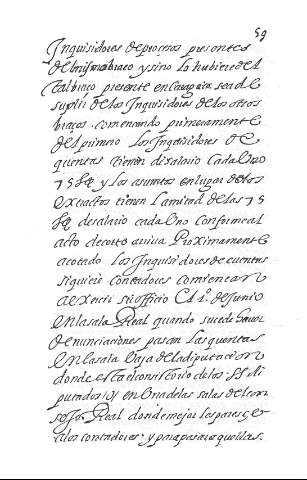 59
Inquisidores de procesos presentes
del mismo braço y sino lo hubiere del
tal braço presente en Caragoça sea de
suplir de los Inquisidores de los otros
braços. començando primeramente
del primero los Inquisidores de
quentas tienen de salario Cada Uno
75 y los asumtos en lugar de los
exactos tienen la mitad de las 75
de salario cada Uno conforme al
acto de corte aviua Proximamente
acotado los Inquisidores de cuentas
siquiere Contadores comiençan
a exercir su officio El 1º. de Junio
en la sala Real quando sucede hauer
denunciaciones pasan las quentas
en la sala baja de la diputacion
donde esta el consistorio de los SS di
putados, o en Una de las salas del con
sejo Real donde mejor les pareçe
a los contadores, y para pasar aquellas.